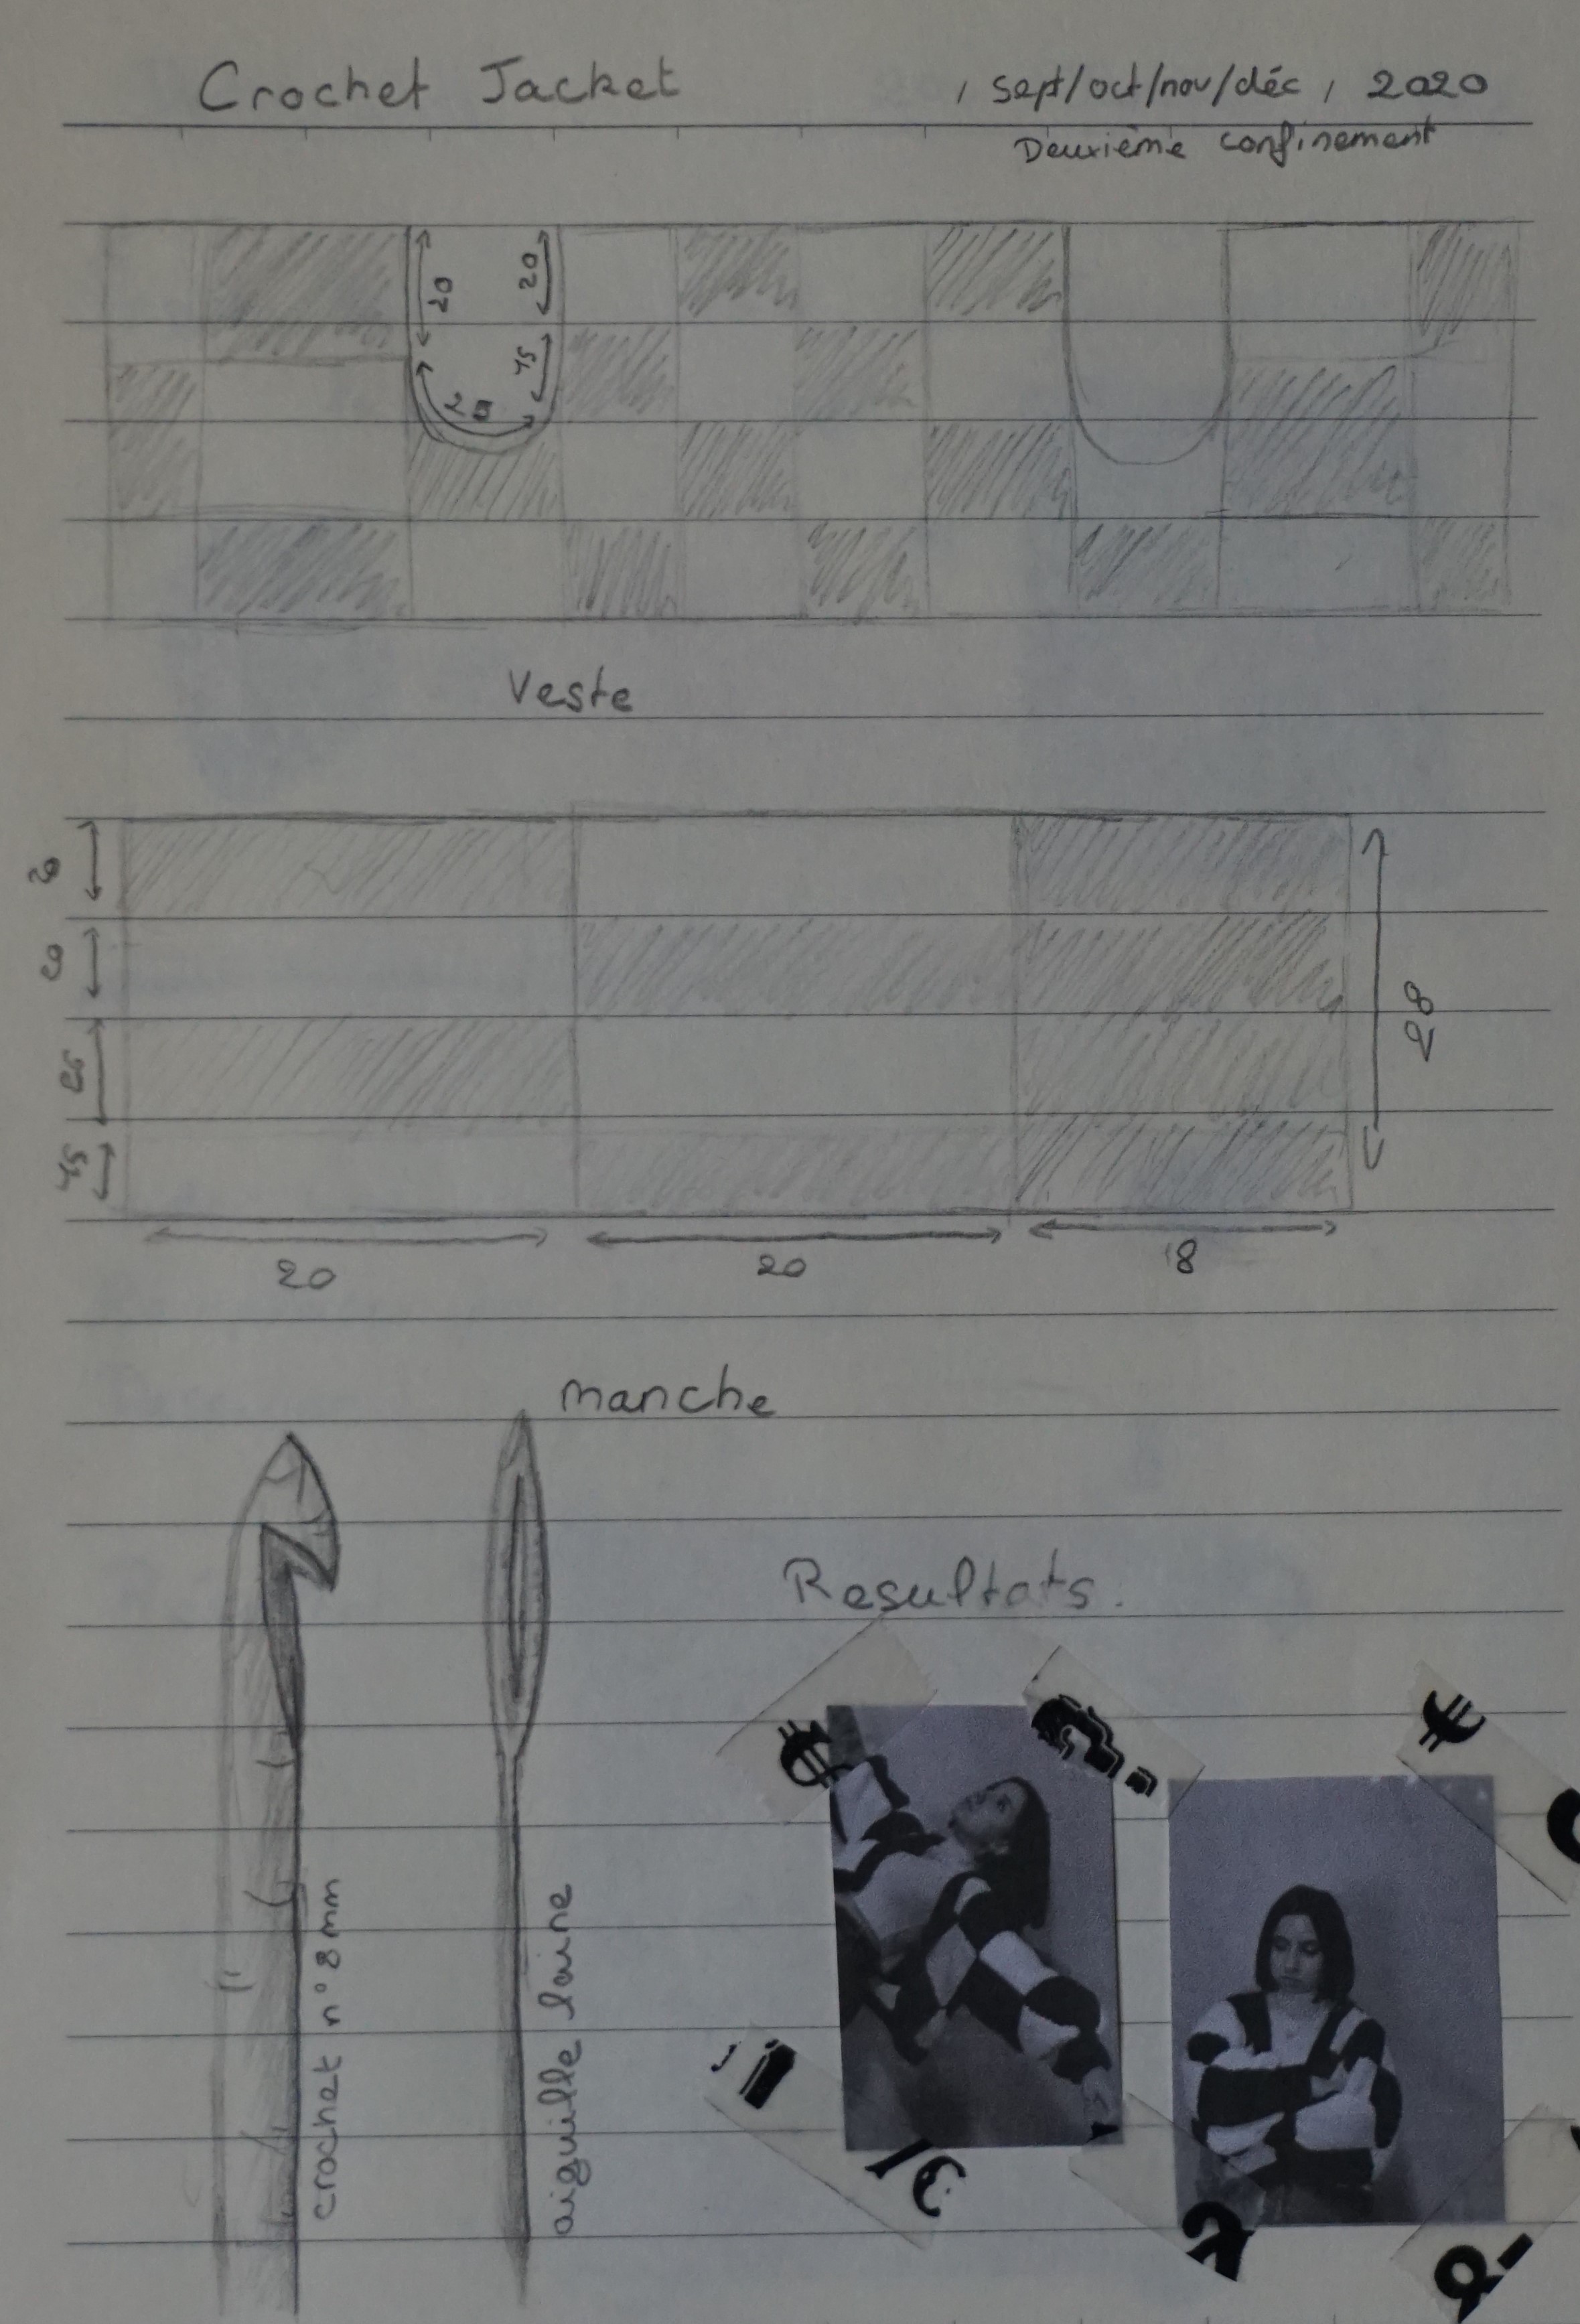 Crochet Jacket
sept/oct/nov/déc, 2020
Deuxième confinement
20
20
15
Veste
20
20
15
28
20
20
18
manche
Resultats.
crochet n° 8 mm
aiguille laine